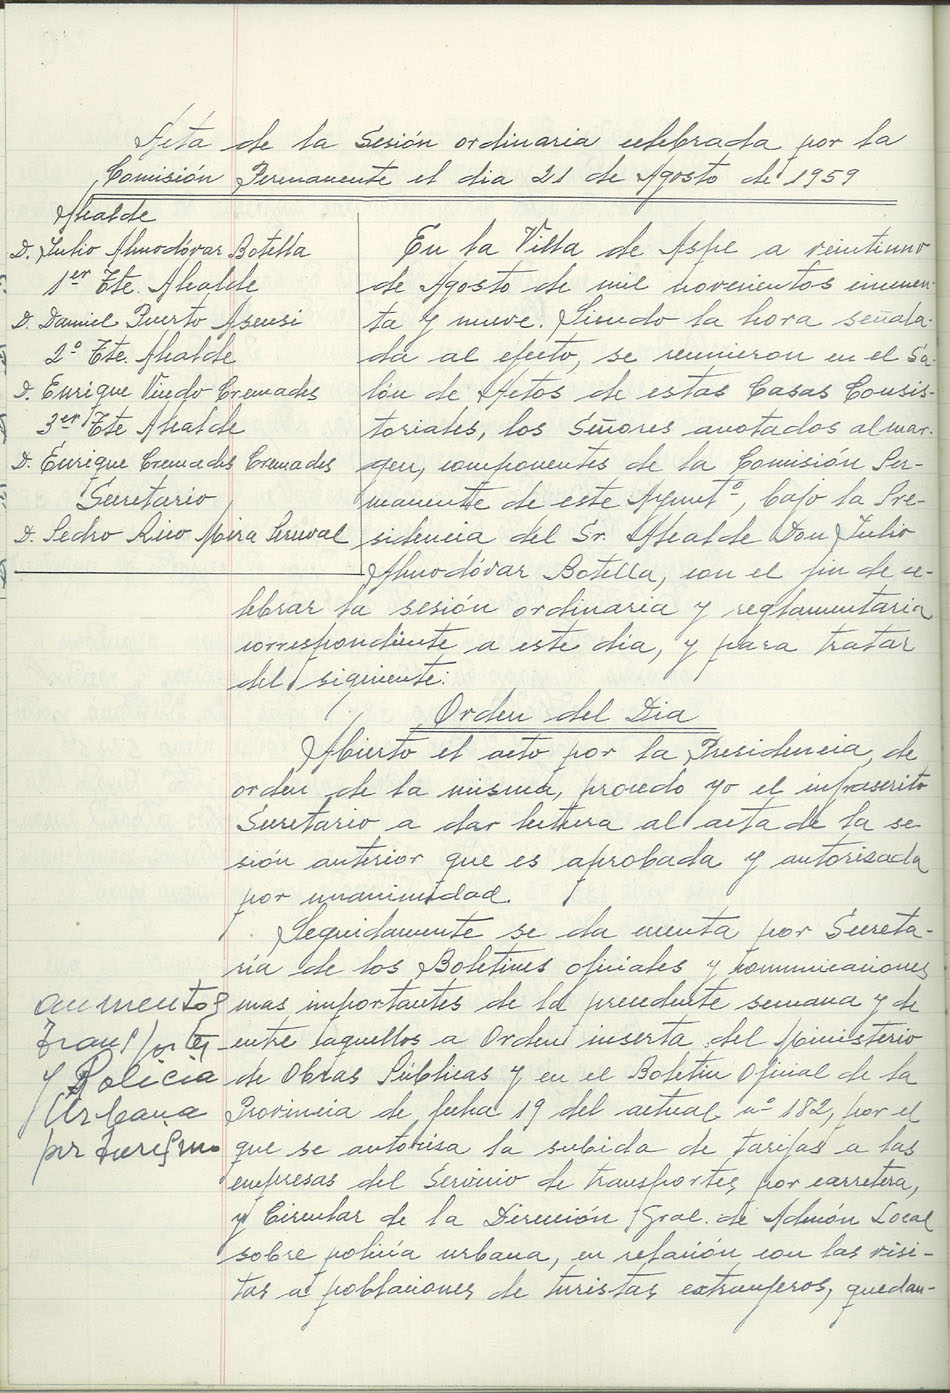 Acta de la Sesión ordinaria celebrada por la
Comisión Permanente el dia 21 de Agosto de 1959
Alcalde
D. Julio Almodóvar Botella
1er Tte. Alcalde
D. Daniel Puerto Asensi
2º Tte. Alcalde
D. Enrique Vindo Cremades
3er Tte Alcalde
D. Enrique Cremades Cremades
Secretario
D. Pedro Rico Mira
En la Villa de Aspe a veintiuno
de Agosto de mil novecientos cincuen-
ta y nueve. Siendo la hora señala-
da al efecto, se reunieron en el Sa-
lón de Actos de estas Casas Consis-
toriales, los Señores anotados al mar-
gen, componentes de la Comisión Per-
manente de este Ayuntº, bajo la Pre-
sidencia del Sr. Alcalde Don Julio
Almodóvar Botella, con el fin de ce-
lebrar la sesión ordinaria y reglamentaria
correspondiente a este dia, y para tratar
del siguiente:
Orden del Dia
Abierto el acto por la Presidencia, de
orden de la misma, procedo yo el infrascrito
Secretario a dar lectura al acta de la se-
sión anterior que es aprobada y autorizada
por unanimidad.
Seguidamente se da cuenta por Secreta-
ría de los Boletines oficiales y comunicaciones
mas importantes de la precedente semana y de
entre aquellos a Orden inserta del Ministerio
de Obras Públicas y en el Boletin Oficial de la
Provincia de fecha 19 del actual nº 182, por el
que se autoriza la subida de tarifas a las
empresas del Servicio de transportes por carretera,
y Circular de la Dirección Gral. de Admón Local
sobre policía urbana, en relación con las visi-
tas a poblaciones de turistas extranjeros, quedan-
aumentos
transportes
y Policia
Urbana
por turismo